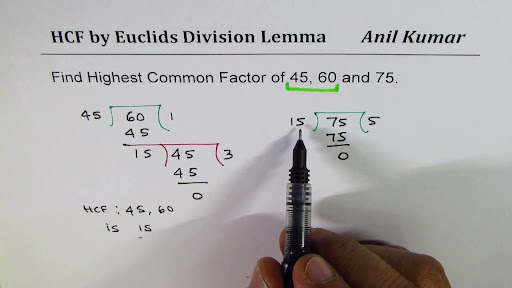 HCF by Euclids Division Lemma Anil Kumar
Find Highest Common Factor of 45, 60 and 75.
45 ) 60 ( 1
45
15 ) 45 ( 3
45
0
HCF : 45, 60
is 15
15 ) 75 ( 5
75
0